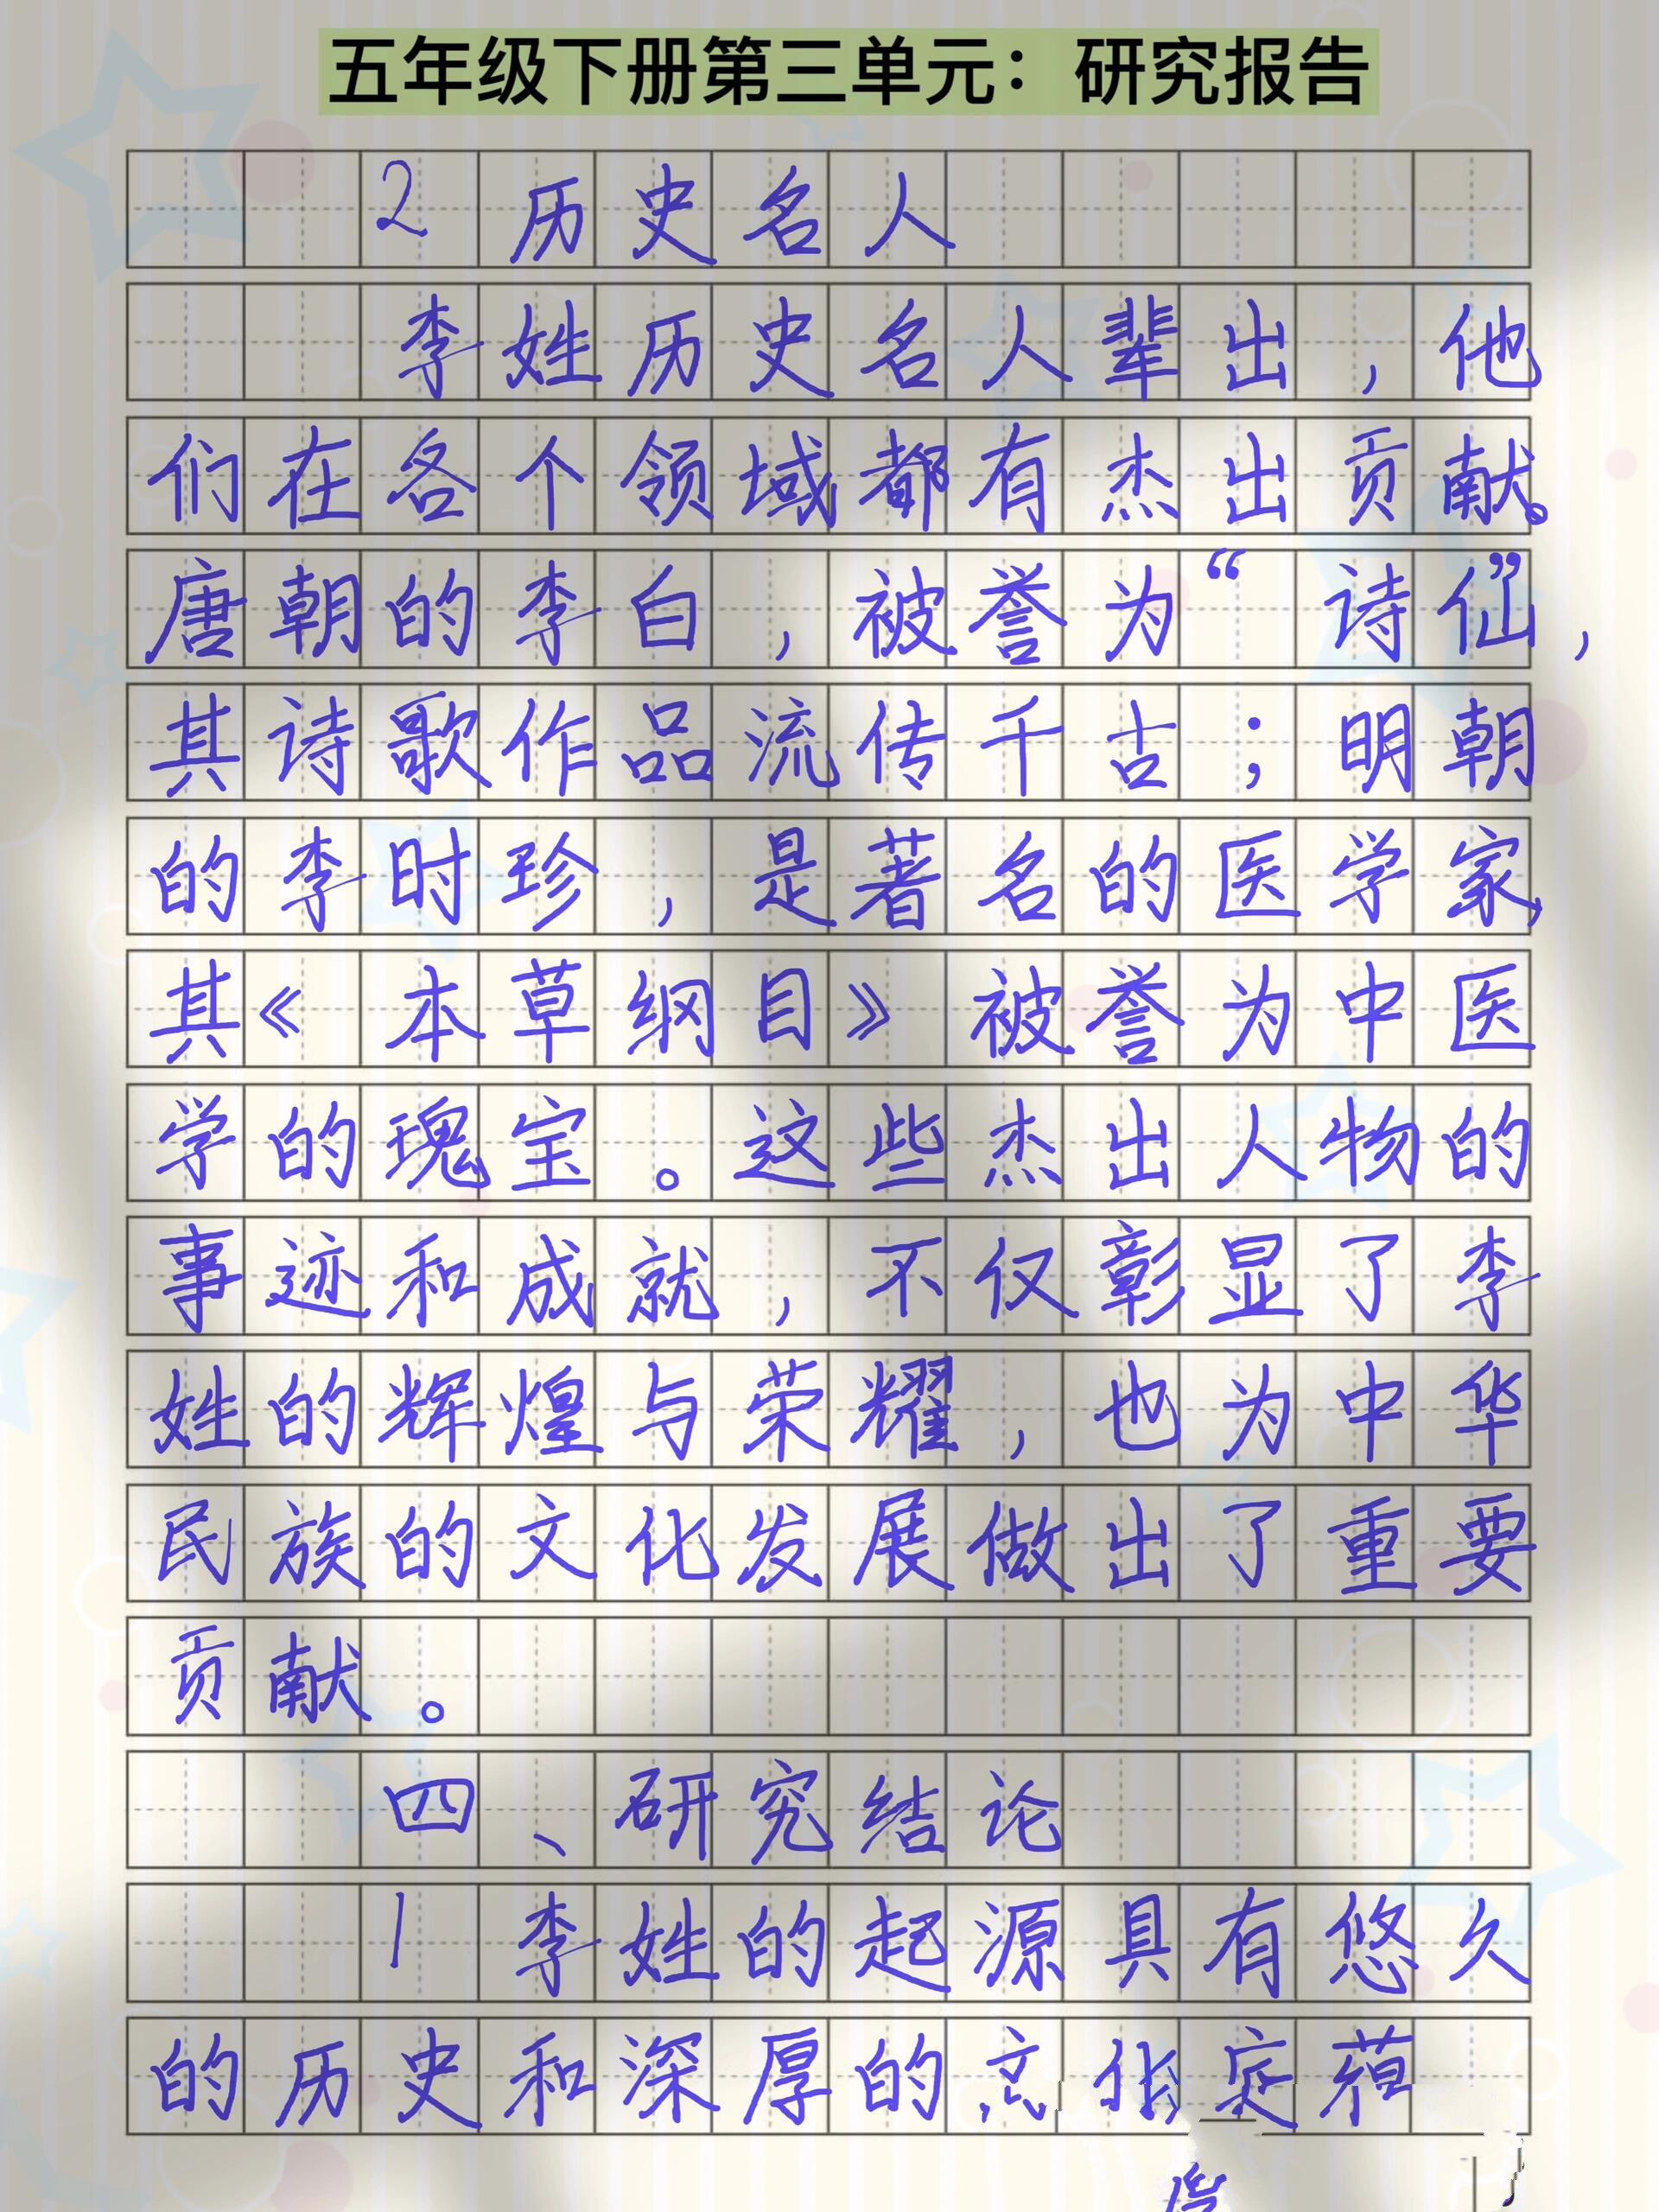 五年级下册第三单元：研究报告
2 历史名人
李姓历史名人辈出，他
们在各个领域都有杰出贡献。
唐朝的李白，被誉为“诗仙”，
其诗歌作品流传千古；明朝
的李时珍，是著名的医学家，
其《本草纲目》被誉为中医
学的瑰宝。这些杰出人物的
事迹和成就，不仅彰显了李
姓的辉煌与荣耀，也为中华
民族的文化发展做出了重要
贡献。
四、研究结论
1 李姓的起源具有悠久
的历史和深厚的文化底蕴